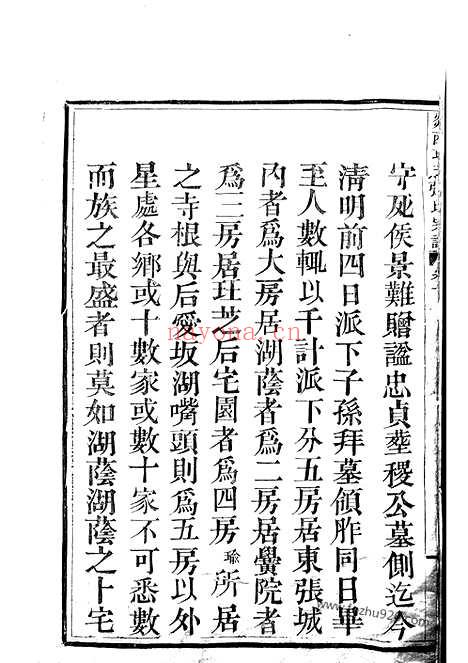 守死侯景難贈謚忠貞塟稷公墓側迄今
清明前四日派下子孫拜墓領胙同日畢
至人數輒以千計派下分五房居東張城
內者爲大房居湖蔭者爲二房居黌院者
爲三房居珏芝后宅園者爲四房瑜所居
之寺根與后愛坂湖嘴頭則爲五房以外
星處各鄉或十數家或數十家不可悉數
而族之最盛者則莫如湖蔭湖蔭之十宅
nayona.cn